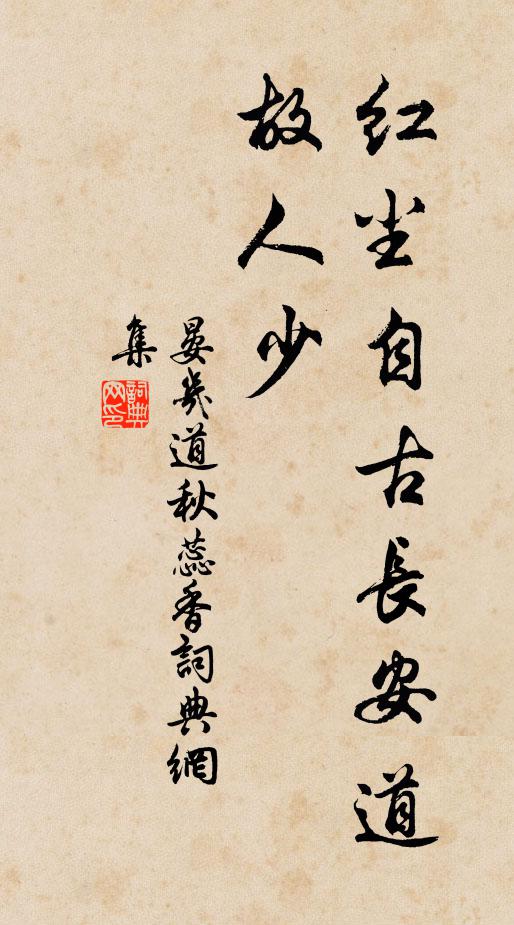 红尘自古長安道
故人少
晏幾道秋蕊香詞典網
集
詞典
网印